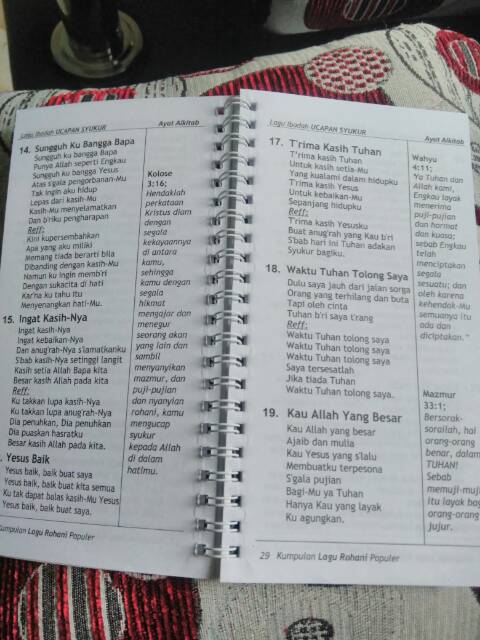 Lagu Ibadah UCAPAN SYUKUR
Ayat Alkitab
14. Sungguh Ku Bangga Bapa
Sungguh ku bangga Bapa
Punya Allah seperti Engkau
Sungguh ku bangga Yesus
Atas s'gala pengorbanan-Mu
Tak ingin aku hidup
Lepas dari kasih-Mu
Kasih-Mu menyelamatkan
Dan b'riku pengharapan
Reff:
Kini kupersembahkan
Apa yang aku miliki
Memang tiada berarti bila
Dibanding dengan kasih-Mu
Namun ku ingin memb'ri
Dengan sukacita di hati
Kar'na ku tahu itu
Menyenangkan hati-Mu.
15. Ingat Kasih-Nya
Ingat kasih-Nya
Ingat kebaikan-Nya
Dan anug'rah-Nya s'lamatkanku
S'bab kasih-Nya setinggi langit
Kasih setia Allah Bapa kita
Besar kasih Allah pada kita
Reff:
Ku takkan lupa kasih-Nya
Ku takkan lupa anug'rah-Nya
Dia penuhkan, Dia penuhkan
Dia puaskan hasratku
Besar kasih Allah pada kita.
Yesus Baik
Yesus baik, baik buat saya
Yesus baik, baik buat kita semua
Ku tak dapat balas kasih-Mu Yesus
Yesus baik, baik buat saya.
Kolose
3:16;
Hendaklah
perkataan
Kristus diam
dengan
segala
kekayaannya
di antara
kamu,
sehingga
kamu dengan
segala
hikmat
mengajar dan
menegur
seorang akan
yang lain dan
sambil
menyanyikan
mazmur, dan
puji-pujian
dan nyanyian
rohani, kamu
mengucap
syukur
kepada Allah
di dalam
hatimu.
Kumpulan Lagu Rohani Populer
Lagu Ibadah UCAPAN SYUKUR
Ayat Alkitab
17. T'rima Kasih Tuhan
T'rima kasih Tuhan
Untuk kasih setia-Mu
Yang kualami dalam hidupku
T'rima kasih Yesus
Untuk kebaikan-Mu
Sepanjang hidupku
Reff:
T'rima kasih Yesusku
Buat anug'rah yang Kau b'ri
S'bab hari ini Tuhan adakan
Syukur bagiku.
18. Waktu Tuhan Tolong Saya
Dulu saya jauh dari jalan sorga
Orang yang terhilang dan buta
Tapi oleh cinta
Tuhan b'ri saya t'rang
Reff:
Waktu Tuhan tolong saya
Waktu Tuhan tolong saya
Waktu Tuhan tolong saya
Saya tersesatlah
Jika tiada Tuhan
Waktu Tuhan tolong saya.
19. Kau Allah Yang Besar
Kau Allah yang besar
Ajaib dan mulia
Kau Yesus yang s'lalu
Membuatku terpesona
S'gala pujian
Bagi-Mu ya Tuhan
Hanya Kau yang layak
Ku agungkan.
Wahyu
4:11;
Ya Tuhan dan
Allah kami,
Engkau layak
menerima
puji-pujian
dan hormat
dan kuasa;
sebab Engkau
telah
menciptakan
segala
sesuatu; dan
oleh karena
kehendak-Mu
semuanya itu
ada dan
diciptakan."
Mazmur
33:1;
Bersorak-
sorailah, hai
orang-orang
benar, dalam
TUHAN!
Sebab
memuji-muji
itu layak bag
orang-orang
jujur.
29 Kumpulan Lagu Rohani Populer